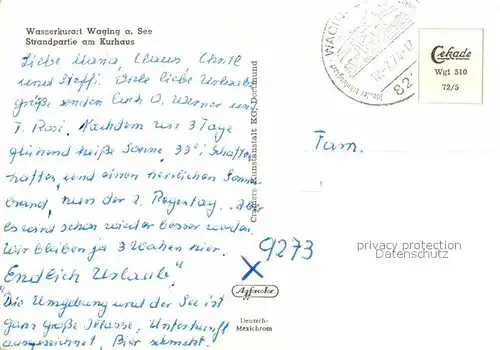 Wasserkurort Waging a. See
Strandpartie am Kurhaus
Liebe Maria, Claus Christl
und Steffi. Viele liebe Urlaubs
grüße senden Euch O. Werner und
T. Rosi. Nachdem wir 3 Tage
glühend heiße Sonne, 33° Schatten
hatten und einen herrlichen Sonnen
brand, nun der 2. Regentag. Aber
es wird schon wieder besser werden.
Wir bleiben ja 3 Wochen hier.
"Endlich Urlaub"
Die Umgebung und der See ist
ganz große Klasse, Unterkunft
ausgezeichnet, Bier schmeckt.
Cramers Kunstanstalt KG, Dortmund
WAGING
82
Cekade
Wgi 510
72/5
Fam.
9273
privacy protection
Datenschutz
Agfacolor
Deutsch-
Mexichrom